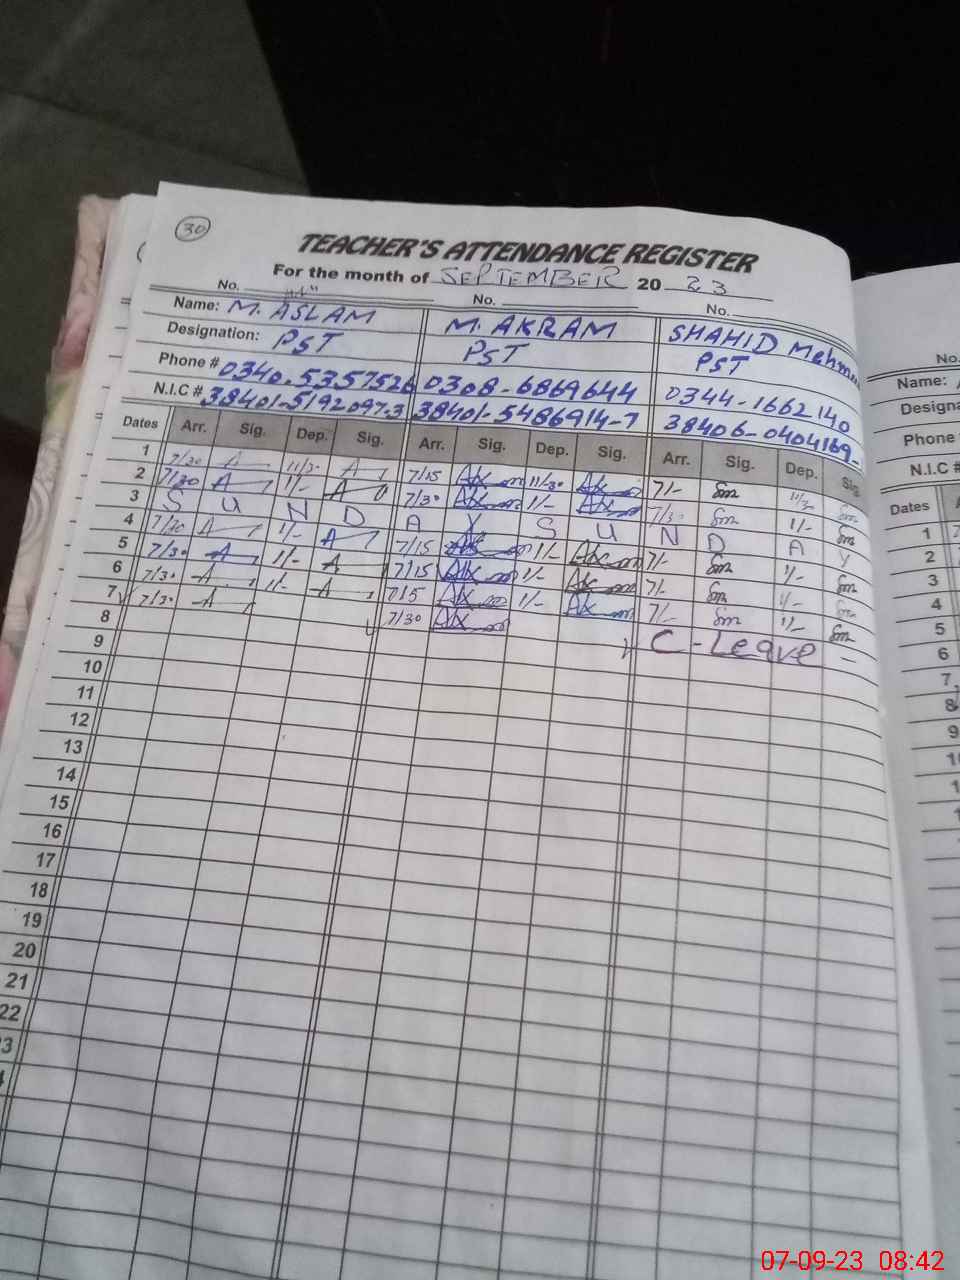 30
TEACHER'S ATTENDANCE REGISTER
For the month of SEPTEMBER 20 23
No. No. No.
Name: M. ASLAM M. AKRAM SHAHID
Designation: PST PST PST
Phone # 0340-5357526 0308-6869644 0344-1662140
N.I.C # 38401-5192097-3 38401-5486914-7 38406-0404169-
Dates Arr. Sig. Dep. Sig. Arr. Sig. Dep. Sig. Arr. Sig. Dep. Sig.
1 7/30 A 11/30 A 7/15 11/30 7/- Sm 11/30 Sm
2 7/30 A 1/- A 7/30 1/- 7/30 Sm 1/- Sm
3 S U N D A Y S U N D A Y
4 7/30 A 1/- A 7/15 1/- 7/- Sm 1/- Sm
5 7/30 A 1/- A 7/15 1/- 7/- Sm 1/- Sm
6 7/30 A 1/- A 1/- 7/- Sm 1/- Sm
7 7/30 A 7/30 C-Leave –
8
9
10
11
12
13
14
15
16
17
18
19
20
21
22
No.
Name:
Phone #
N.I.C #
Dates
1
2
3
4
5
6
7
8
9
07-09-23 08:42